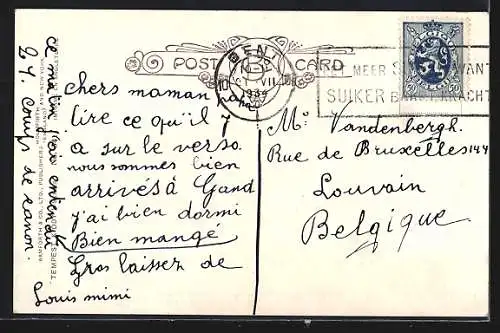 POST CARD
GENT
VII
1930
BELGIQUE
50
MEER
SUIKER
chers maman papa
lire ce qu'il y
a sur le verso
nous sommes bien
arrivés à Gand
j'ai bien dormi
Bien mangé
Gros baisser de
Louis mimi
ce matin j'ai entendu
24 coups de canon.
BAMFORTH & CO. LTD., PUBLISHERS
Mr Vandenbergh.
Rue de Bruxelles 144
Louvain
Belgique